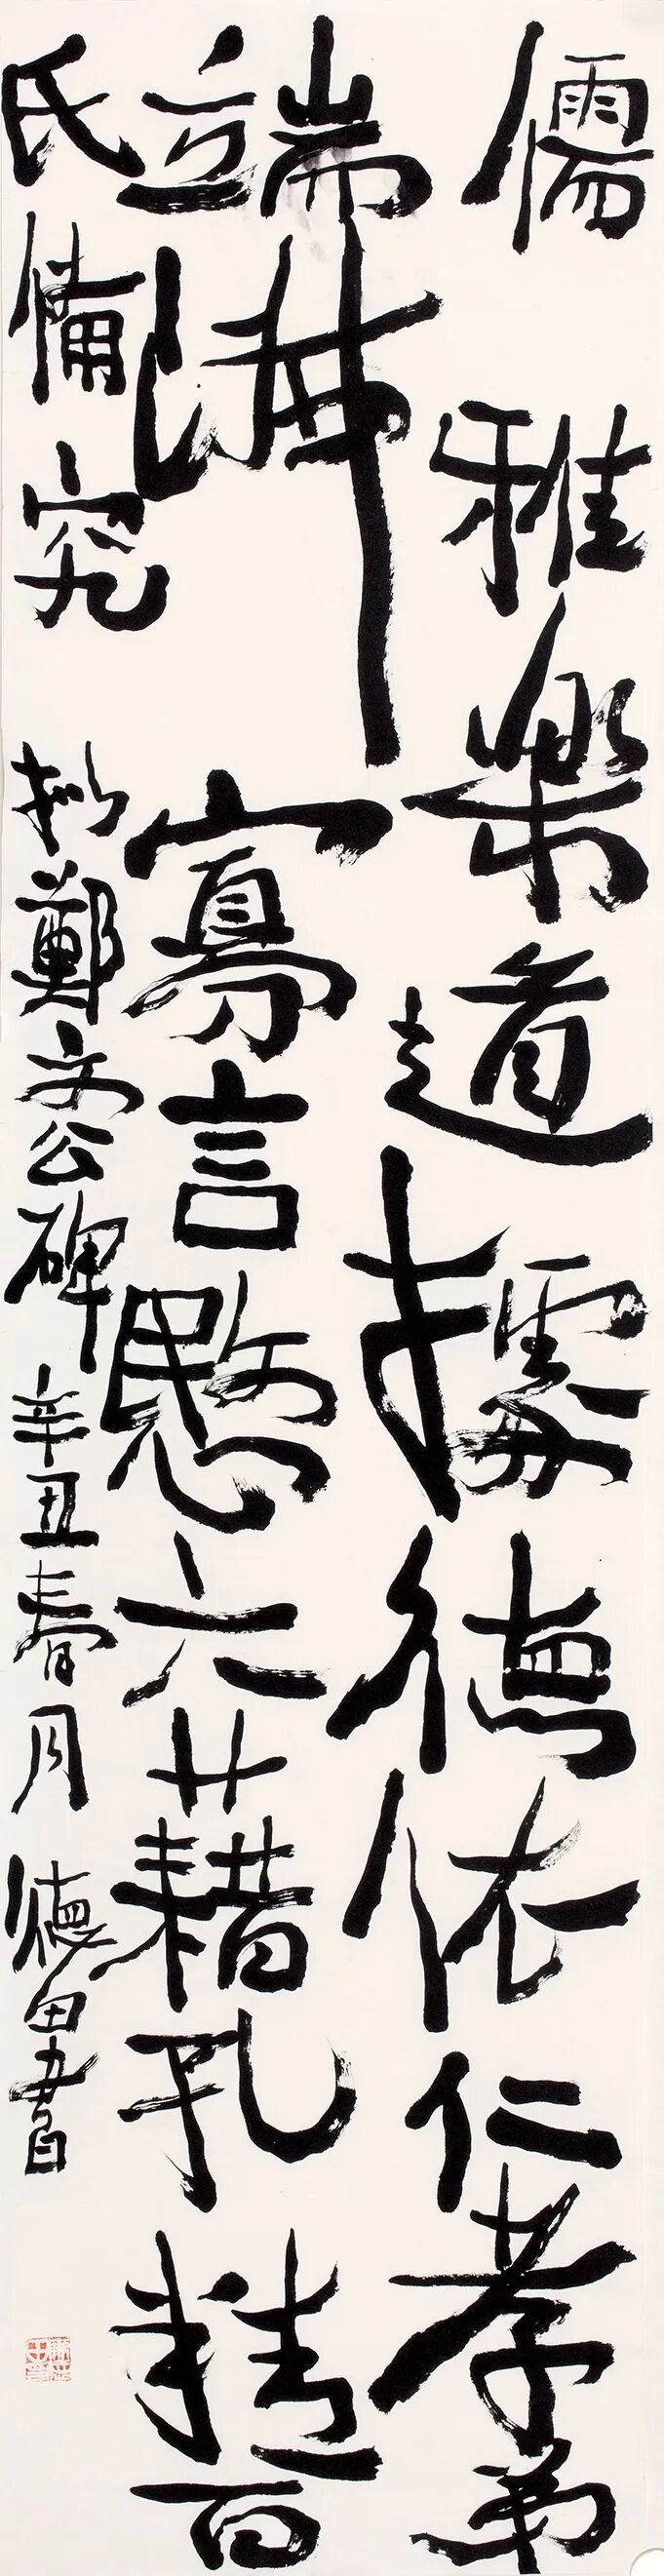 儒雅樂道據德依仁孝弟
端寡言愍六藉孔精百
氏備究
拟鄭文公碑辛丑春月德田書